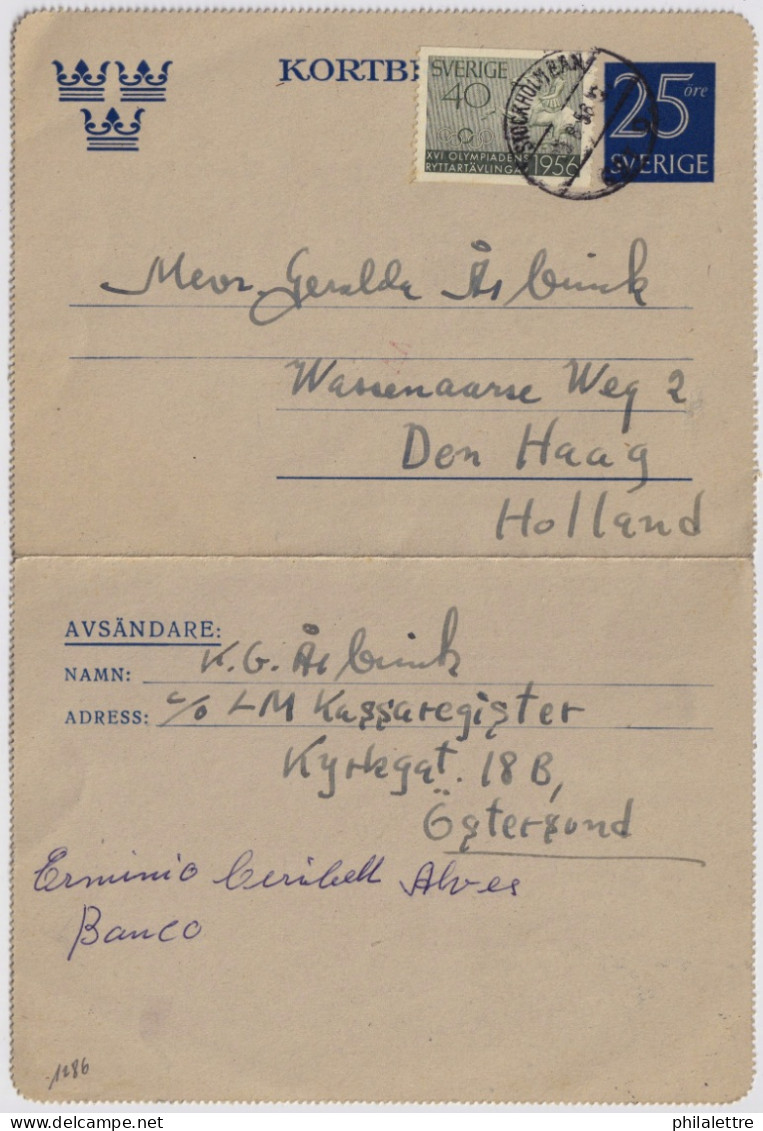 KORTB
SVERIGE
40
XVI OLYMPIADENS
RYTTARTÄVLINGAR 1956
STOCKHOLM BAN
25 öre
SVERIGE
Mevr. Geralda
Wassenaarse Weg 2
Den Haag
Holland
AVSÄNDARE:
NAMN: K.G.
ADRESS: c/o LM Kassaregister
Kyrkgat. 18 B,
Östersund
Erminio Alves
Banco
1286
philalettre